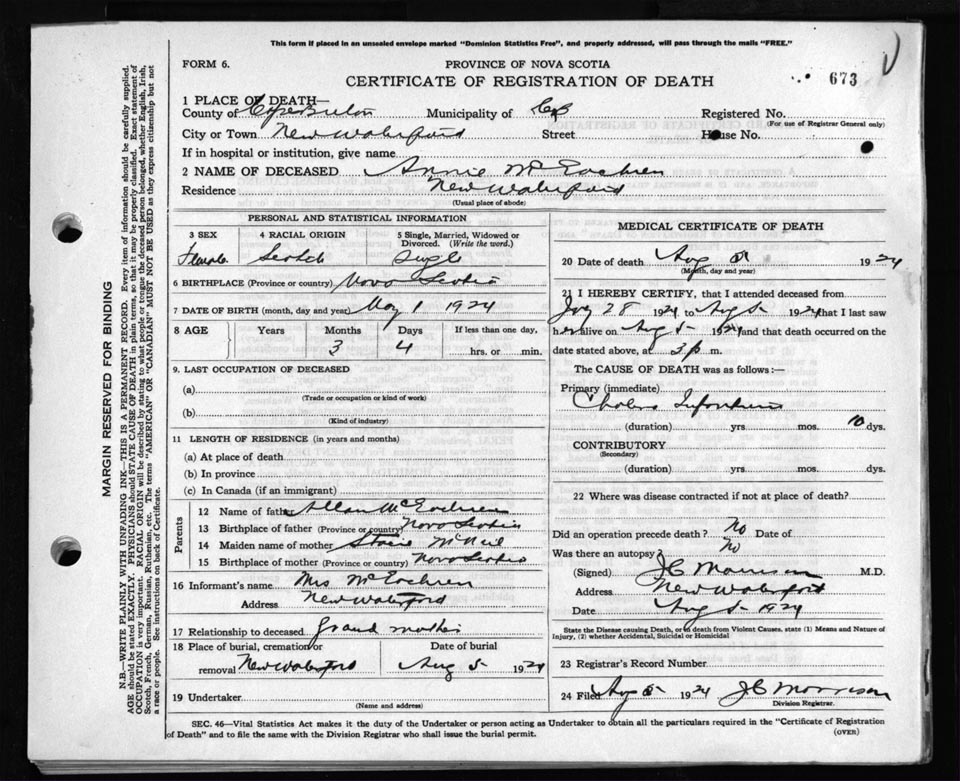 This form if placed in an unsealed envelope marked "Dominion Statistics Free", and properly addressed, will pass through the mails "FREE."
FORM 6.
PROVINCE OF NOVA SCOTIA
CERTIFICATE OF REGISTRATION OF DEATH
673
1 PLACE OF DEATH—
County of Cape Breton Municipality of CB Registered No.
(For use of Registrar General only)
City or Town New Waterford Street House No.
If in hospital or institution, give name
2 NAME OF DECEASED Annie McEachren
Residence New Waterford
(Usual place of abode)
PERSONAL AND STATISTICAL INFORMATION
3 SEX 4 RACIAL ORIGIN 5 Single, Married, Widowed or Divorced. (Write the word.)
Female Scotch Single
6 BIRTHPLACE (Province or country) Nova Scotia
7 DATE OF BIRTH (month, day and year) May 1 1924
8 AGE Years Months Days If less than one day,
3 4 hrs. or min.
9. LAST OCCUPATION OF DECEASED
(a)
(Trade or occupation or kind of work)
(b)
(Kind of industry)
11 LENGTH OF RESIDENCE (in years and months)
(a) At place of death
(b) In province
(c) In Canada (if an immigrant)
Parents
12 Name of father Allan McEachren
13 Birthplace of father (Province or country) Nova Scotia
14 Maiden name of mother McNeil
15 Birthplace of mother (Province or country) Nova Scotia
16 Informant's name Mrs McEachren
Address New Waterford
17 Relationship to deceased grand mother
18 Place of burial, cremation or removal New Waterford
Date of burial Aug 5 1924
19 Undertaker
(Name and address)
MEDICAL CERTIFICATE OF DEATH
20 Date of death Aug 1924
(Month, day and year)
21 I HEREBY CERTIFY, that I attended deceased from
July 28 1924 to Aug 5 1924 that I last saw
her alive on Aug 5 1924 and that death occurred on
date stated above, at 3 p m.
The CAUSE OF DEATH was as follows:—
Primary (immediate)
Cholera Infantum
(duration) yrs mos. 10 dys.
CONTRIBUTORY
(Secondary)
(duration) yrs mos. dys.
22 Where was disease contracted if not at place of death?
Did an operation precede death? No Date of
Was there an autopsy? No
(Signed) JC Morrison M.D.
Address New Waterford
Date Aug 5 1924
State the Disease causing Death, or to death from Violent Causes, state (1) Means and Nature of
Injury, (2) whether Accidental, Suicidal or Homicidal
23 Registrar's Record Number
24 Filed Aug 5 1924 JC Morrison
Division Registrar.
SEC. 46—Vital Statistics Act makes it the duty of the Undertaker or person acting as Undertaker to obtain all the particulars required in the "Certificate of Registration
of Death" and to file the same with the Division Registrar who shall issue the burial permit.
(OVER)
MARGIN RESERVED FOR BINDING
N.B.—WRITE PLAINLY WITH UNFADING INK—THIS IS A PERMANENT RECORD. Every item of information should be carefully supplied.
AGE should be stated EXACTLY. PHYSICIANS should STATE CAUSE OF DEATH in plain terms, so that it may be properly classified. Exact statement of
OCCUPATION is very important. RACIAL ORIGIN will be described by stating to what people or tongue the deceased person belonged, whether English, Irish,
Scotch, French, German, Russian, Ruthenian, etc. The terms "AMERICAN" OR "CANADIAN" MUST NOT BE USED as they express citizenship but not
a race or people. See instructions on back of Certificate.